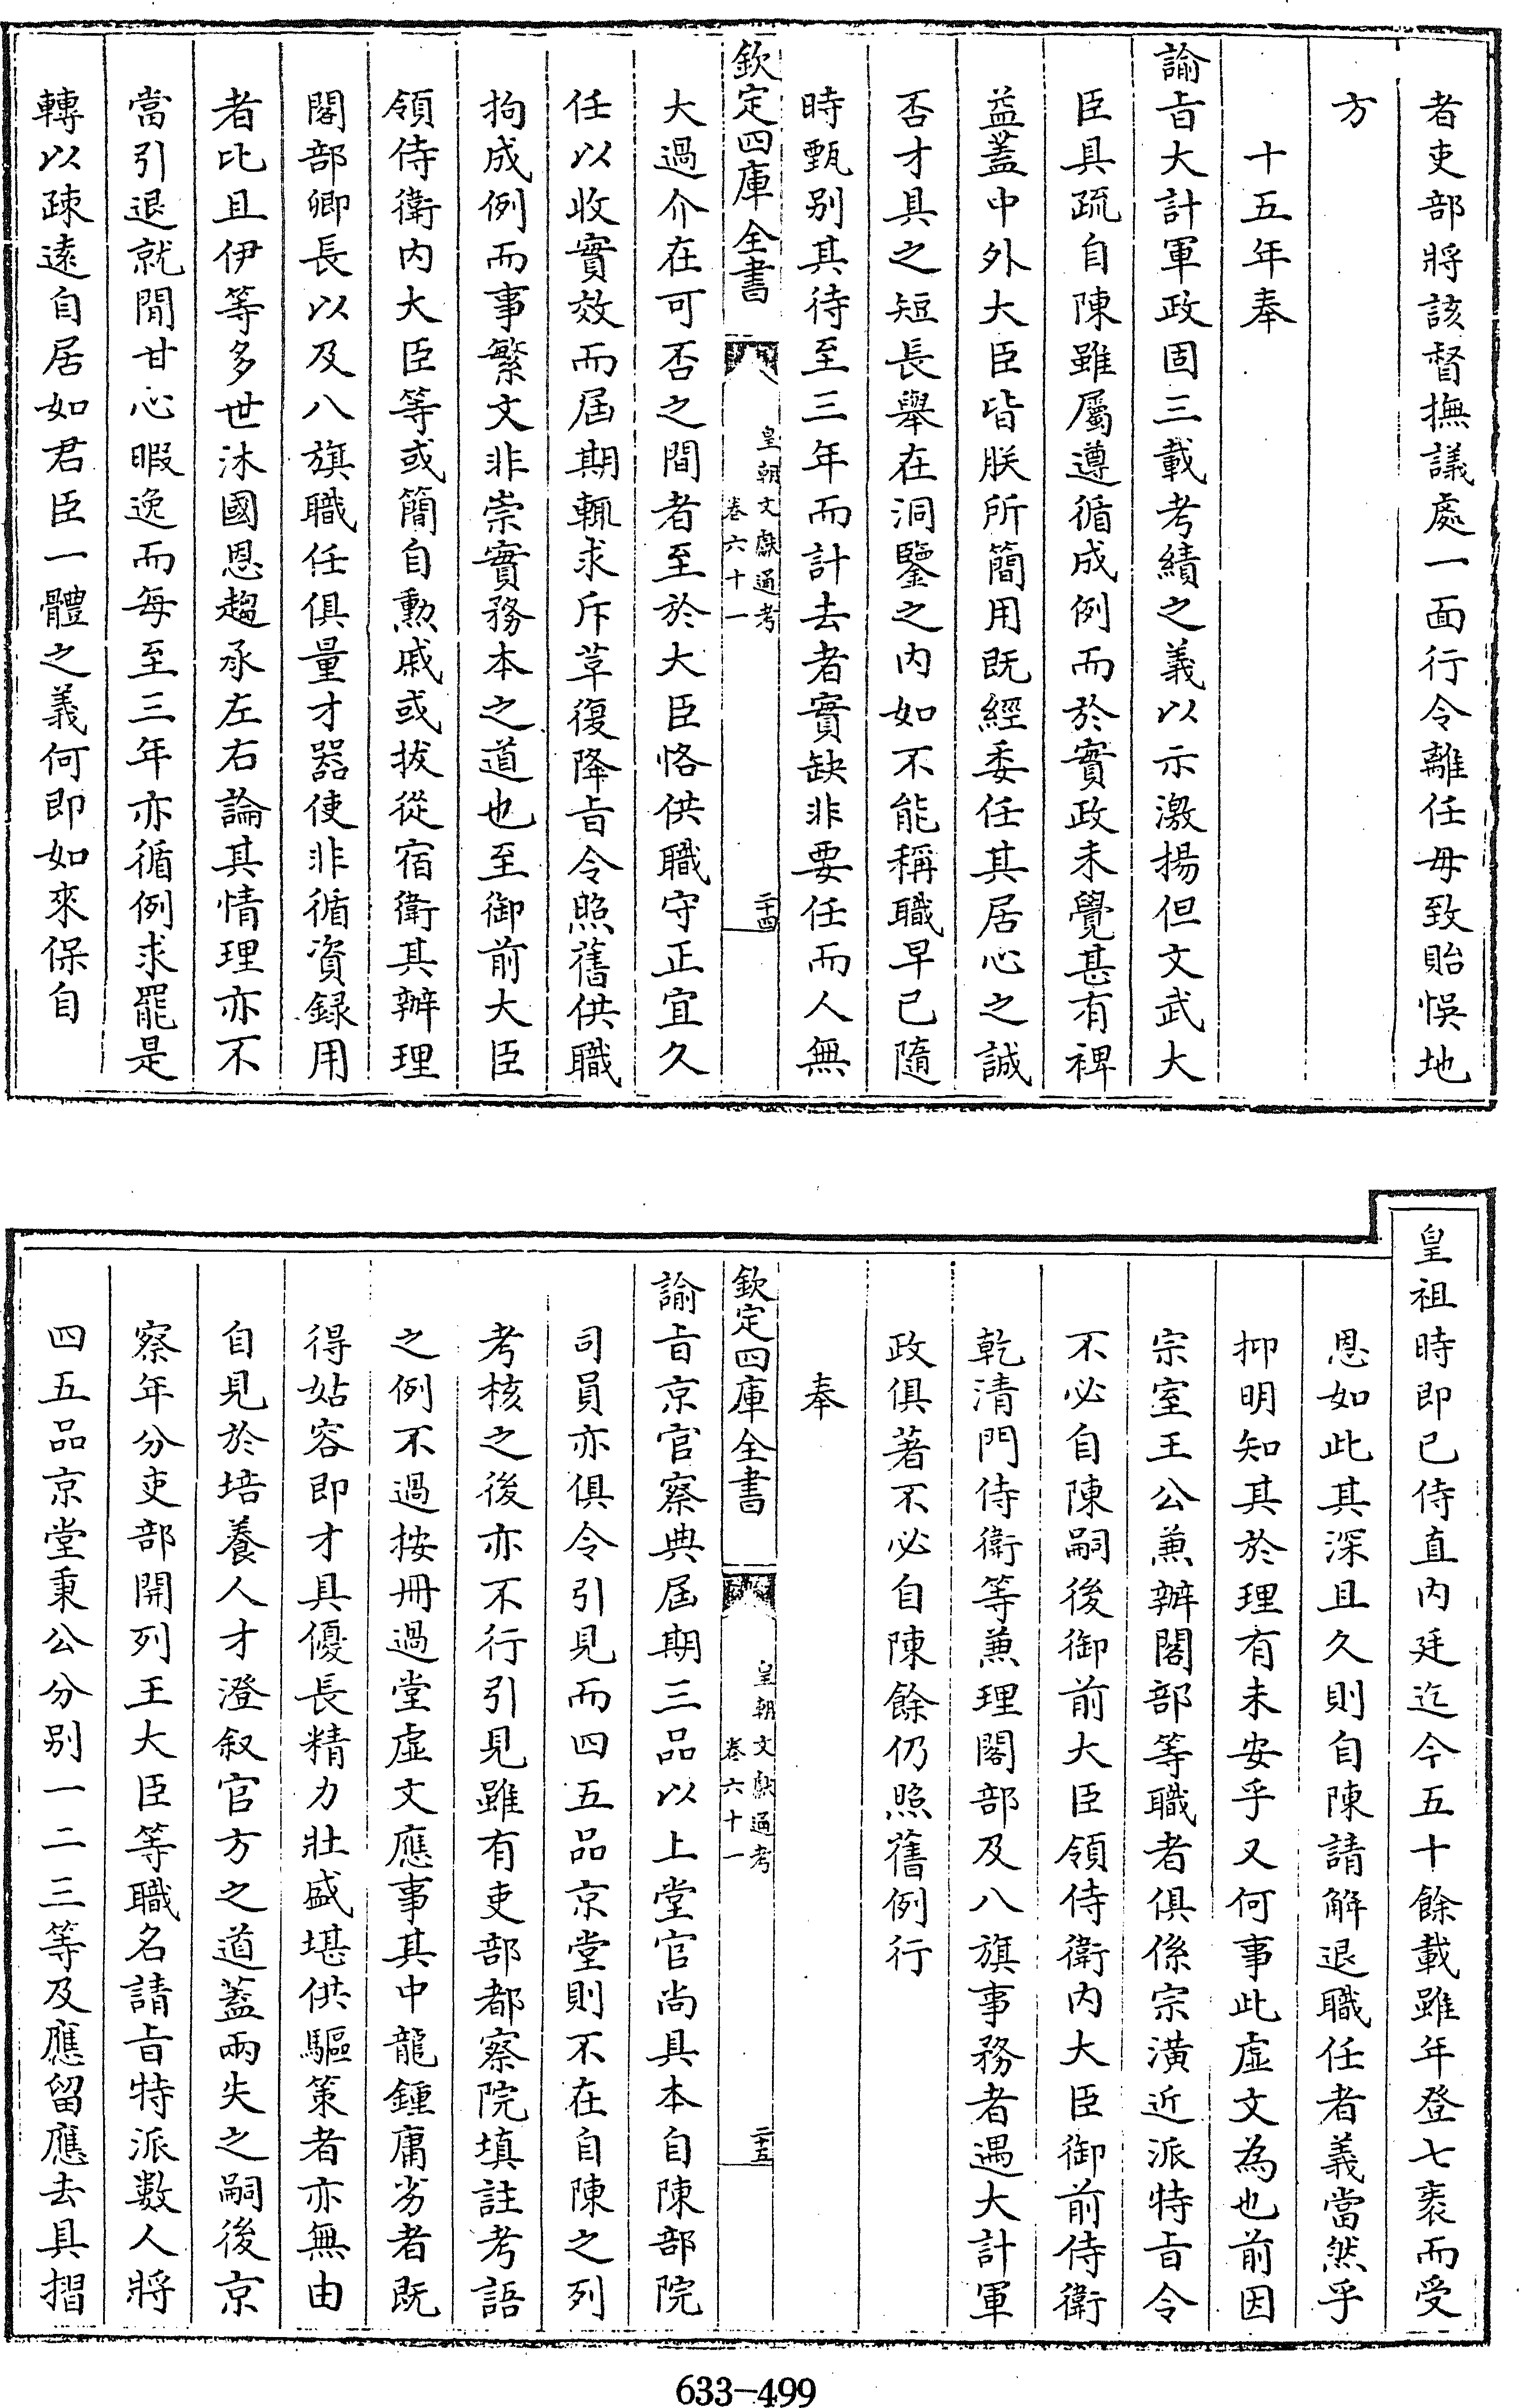 者吏部將該督撫議處一面行令離任毋致貽悞地
方
十五年奉
諭旨大計軍政固三載考績之義以示激揚但文武大
臣具疏自陳雖屬遵循成例而於實政未覺甚有裨
益蓋中外大臣皆朕所簡用既經委任其居心之誠
否才具之短長舉在洞鑒之内如不能稱職早已隨
時甄别其待至三年而計去者實缺非要任而人無
欽定四庫全書
皇朝文獻通考
卷六十一
二十四
大過介在可否之間者至於大臣恪供職守正宜久
任以收實效而屆期輒求斥革復降旨令照舊供職
拘成例而事繁文非崇實務本之道也至御前大臣
領侍衛内大臣等或簡自勲戚或拔從宿衛其辦理
閣部卿長以及八旗職任俱量才器使非循資録用
者比且伊等多世沐國恩趨承左右論其情理亦不
當引退就閒甘心暇逸而每至三年亦循例求罷是
轉以疎遠自居如君臣一體之義何即如來保自
皇祖時即已侍直内廷迄今五十餘載雖年登七袠而受
恩如此其深且久則自陳請解退職任者義當然乎
抑明知其於理有未安乎又何事此虛文為也前因
宗室王公兼辦閣部等職者俱係宗潢近派特旨令
不必自陳嗣後御前大臣領侍衛内大臣御前侍衛
乾清門侍衛等兼理閣部及八旗事務者遇大計軍
政俱著不必自陳餘仍照舊例行
奉
欽定四庫全書
皇朝文獻通考
卷六十一
二十五
諭旨京官察典屆期三品以上堂官尚具本自陳部院
司員亦俱令引見而四五品京堂則不在自陳之列
考核之後亦不行引見雖有吏部都察院填註考語
之例不過按冊過堂虛文應事其中龍鍾庸劣者既
得姑容即才具優長精力壯盛堪供驅策者亦無由
自見於培養人才澄叙官方之道蓋兩失之嗣後京
察年分吏部開列王大臣等職名請旨特派數人將
四五品京堂秉公分别一二三等及應留應去具摺
633-499